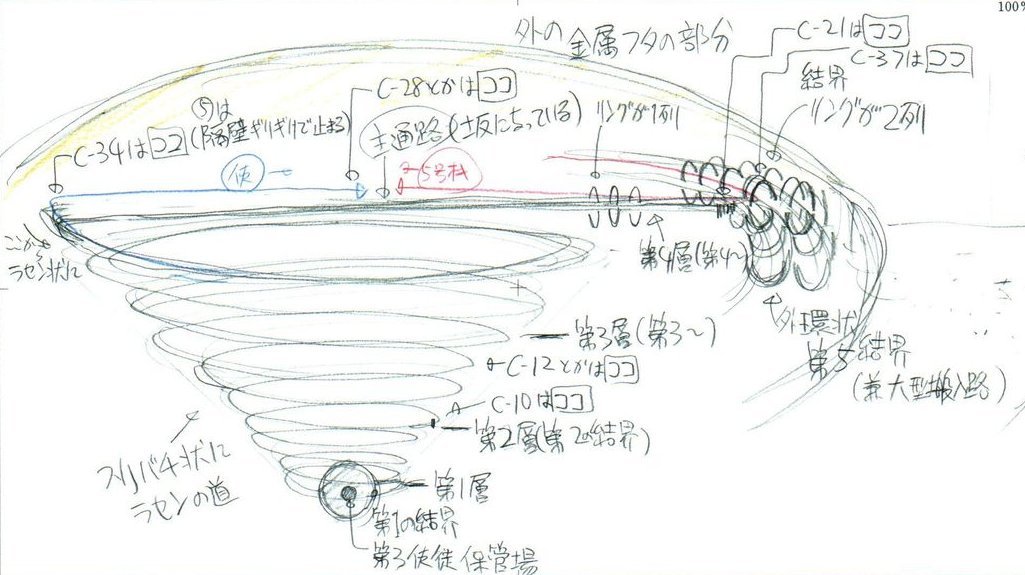 100%
外の金属フタの部分
C-21はココ
C-37はココ
C-28とかはココ
結界
リングが2列
⑤は
(隔壁ギリギリで止まる)
主通路(坂になっている)
リングが1列
C-34はココ
使
5号機
ここから
ラセン状に
第4層(第4〜)
外環状
第5結界
(兼大型搬入路)
第3層(第3〜)
C-12とかはココ
C-10はココ
第2層(第2の結界)
スリバチ状に
ラセンの道
第1層
第1の結界
第3使徒保管場